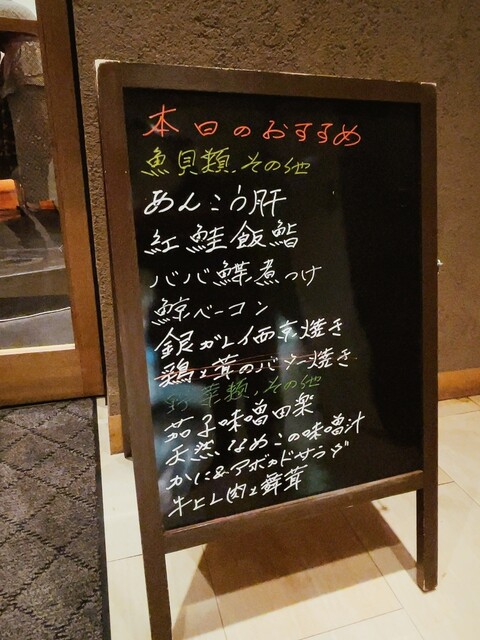 本日のおすすめ
魚貝類、その他
あんこう肝
紅鮭飯鮨
ババ鰈煮つけ
鯨ベーコン
銀ガレイ西京焼き
鶏と茸のバター焼き
お菜類、その他
茄子味噌田楽
天然なめこの味噌汁
かに&アボカドサラダ
牛ヒレ肉と舞茸